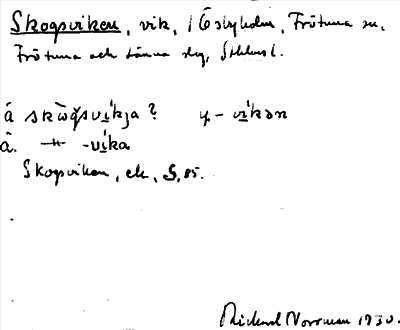 Skogsviken, vik, i Östyholm, Frötuna sn,
Frötuna och Länna skg, Sthlms l.
å skò̀gsvíkja? y. -víkən
å. -"- -víka
Skogsviken, ek. S. 85.
Rickard Norrman 1930.